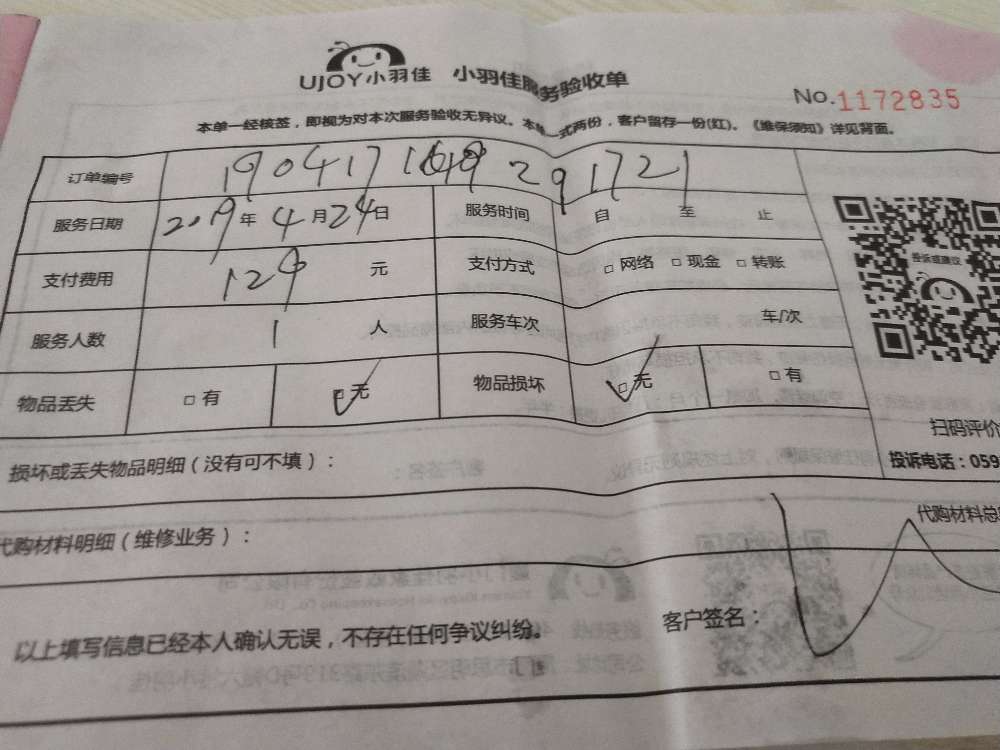 UJOY小羽佳 小羽佳服务验收单
No.1172835
本单一经核签，即视为对本次服务验收无异议。本单一式两份，客户留存一份(红)。《维保须知》详见背面。
订单编号 190417 291721
服务日期 2019年4月24日 服务时间 自 至 止
投诉或建议
支付费用 129 元 支付方式 □网络 □现金 □转账
服务人数 1 人 服务车次 车/次
物品丢失 □有 □无 物品损坏 □无 □有
扫码评价
损坏或丢失物品明细（没有可不填）： 投诉电话：059
代购材料明细（维修业务）： 代购材料总
以上填写信息已经本人确认无误，不存在任何争议纠纷。 客户签名：